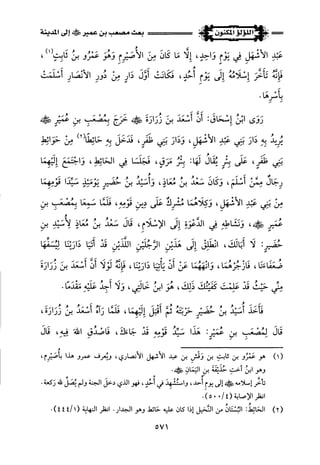 اللؤلؤ المكنون
بعث مصعب بن عمير ﷺ إلى المدينة
عَبْدِ الأَشْهَلِ فِي يَوْمٍ وَاحِدٍ، إِلَّا مَا كَانَ مِنَ الأُصَيْرِمِ وَهُوَ عَمْرُو بنُ ثَابِتٍ(١)،
فَإِنَّهُ تَأَخَّرَ إِسْلَامُهُ إِلَى يَوْمِ أُحُدٍ، فَكَانَتْ أَوَّلَ دَارٍ مِنْ دُورِ الأَنْصَارِ أَسْلَمَتْ
بِأَسْرِهَا.
رَوَى ابْنُ إِسْحَاقَ: أَنَّ أَسْعَدَ بنَ زُرَارَةَ ﷺ خَرَجَ بِمُصْعَبِ بنِ عُمَيْرٍ ﷺ
يُرِيدُ بِهِ دَارَ بَنِي عَبْدِ الأَشْهَلِ، وَدَارَ بَنِي ظَفَرٍ، فَدَخَلَ بِهِ حَائِطًا(٢) مِنْ حَوَائِطِ
بَنِي ظَفَرٍ، عَلَى بِئْرٍ يُقَالُ لَهَا: بِئْرُ مَرَقٍ، فَجَلَسَا فِي الحَائِطِ، وَاجْتَمَعَ إِلَيْهِمَا
رِجَالٌ مِمَّنْ أَسْلَمَ، وَكَانَ سَعْدُ بنُ مُعَاذٍ، وَأُسَيْدُ بنُ حُضَيْرٍ يَوْمَئِذٍ سَيِّدَا قَوْمِهِمَا
مِنْ بَنِي عَبْدِ الأَشْهَلِ، وَكِلَاهُمَا مُشْرِكٌ عَلَى دِينِ قَوْمِهِ، فَلَمَّا سَمِعَا بِمُصْعَبِ بنِ
عُمَيْرٍ ﷺ، وَنَشَاطِهِ فِي الدَّعْوَةِ إِلَى الإِسْلَامِ، قَالَ سَعْدُ بنُ مُعَاذٍ لِأُسَيْدِ بنِ
حُضَيْرٍ: لَا أَبَالَكَ، انْطَلِقْ إِلَى هَذَيْنِ الرَّجُلَيْنِ اللَّذَيْنِ قَدْ أَتَيَا دَارَيْنَا لِيُسَفِّهَا
ضُعَفَاءَنَا، فَازْجُرْهُمَا، وَانْهَهُمَا عَنْ أَنْ يَأْتِيَا دَارَيْنَا، فَإِنَّهُ لَوْلَا أَنَّ أَسْعَدَ بنَ زُرَارَةَ
مِنِّي حَيْثُ قَدْ عَلِمْتَ كَفَيْتُكَ ذَلِكَ، هُوَ ابنُ خَالَتِي، وَلَا أَجِدُ عَلَيْهِ مَقْدَمًا.
فَأَخَذَ أُسَيْدُ بنُ حُضَيْرٍ حَرْبَتَهُ ثُمَّ أَقْبَلَ إِلَيْهِمَا، فَلَمَّا رَآهُ أَسْعَدُ بنُ زُرَارَةَ،
قَالَ لِمُصْعَبِ بنِ عُمَيْرٍ: هَذَا سَيِّدُ قَوْمِهِ قَدْ جَاءَكَ، فَاصْدُقِ اللهَ فِيهِ، قَالَ
(١) هو عَمْرُو بن ثابت بن وَقْشِ بن عبد الأشهل الأنصاري، ويُعرف عمرو هذا بأُصَيْرِم،
وهو ابنُ أختِ حُذَيْفَةَ بنِ اليَمَانِ ﷺ.
تأخَّر إسلامه ﷺ إلى يوم أُحد، واستُشْهِدَ في أُحُدٍ، فهو الذي دخل الجنة ولم يُصَلِّ لله ركعة.
انظر الإصابة (٤/ ٥٠٠).
(٢) الحَائِطُ: البُسْتَانُ من النَّخِيل إذا كان عليه حائط وهو الجدار. انظر النهاية (١/ ٤٤٤).
٥٧١